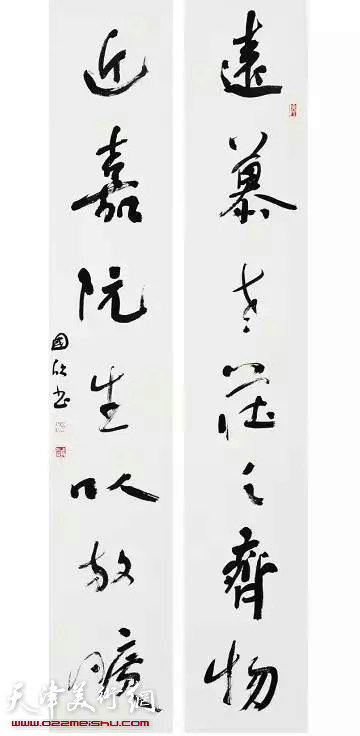 遠慕老莊之齊物
近嘉阮生以放曠
國欣书
天津美術網
www.022meishu.com